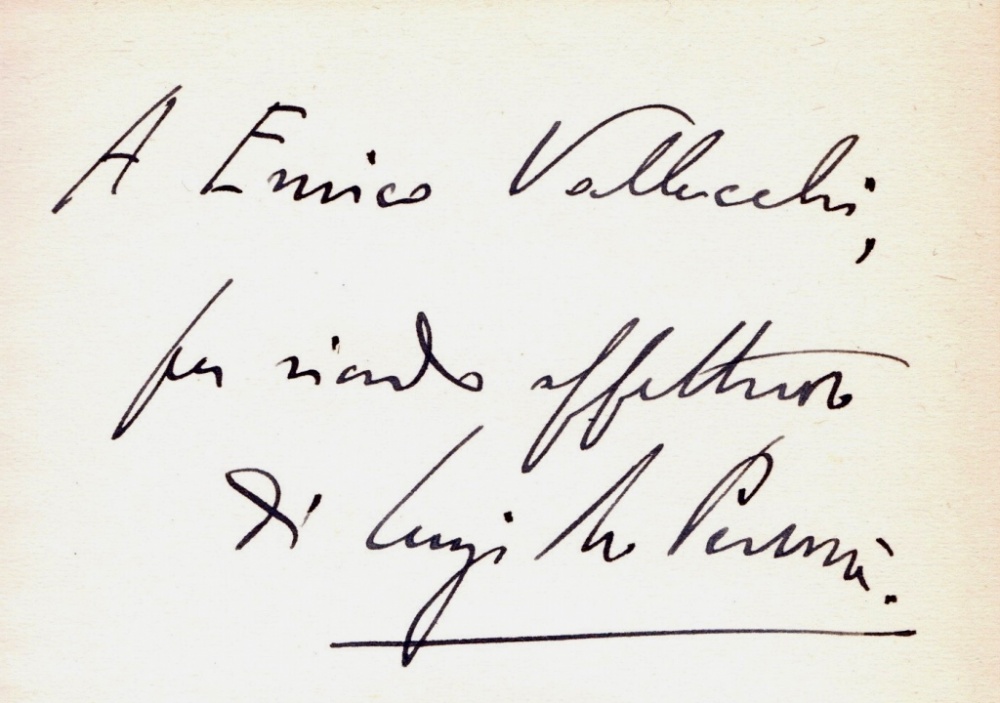 A Enrico Vallecchi,
per ricordo affettuoso
di Luigi Personè.